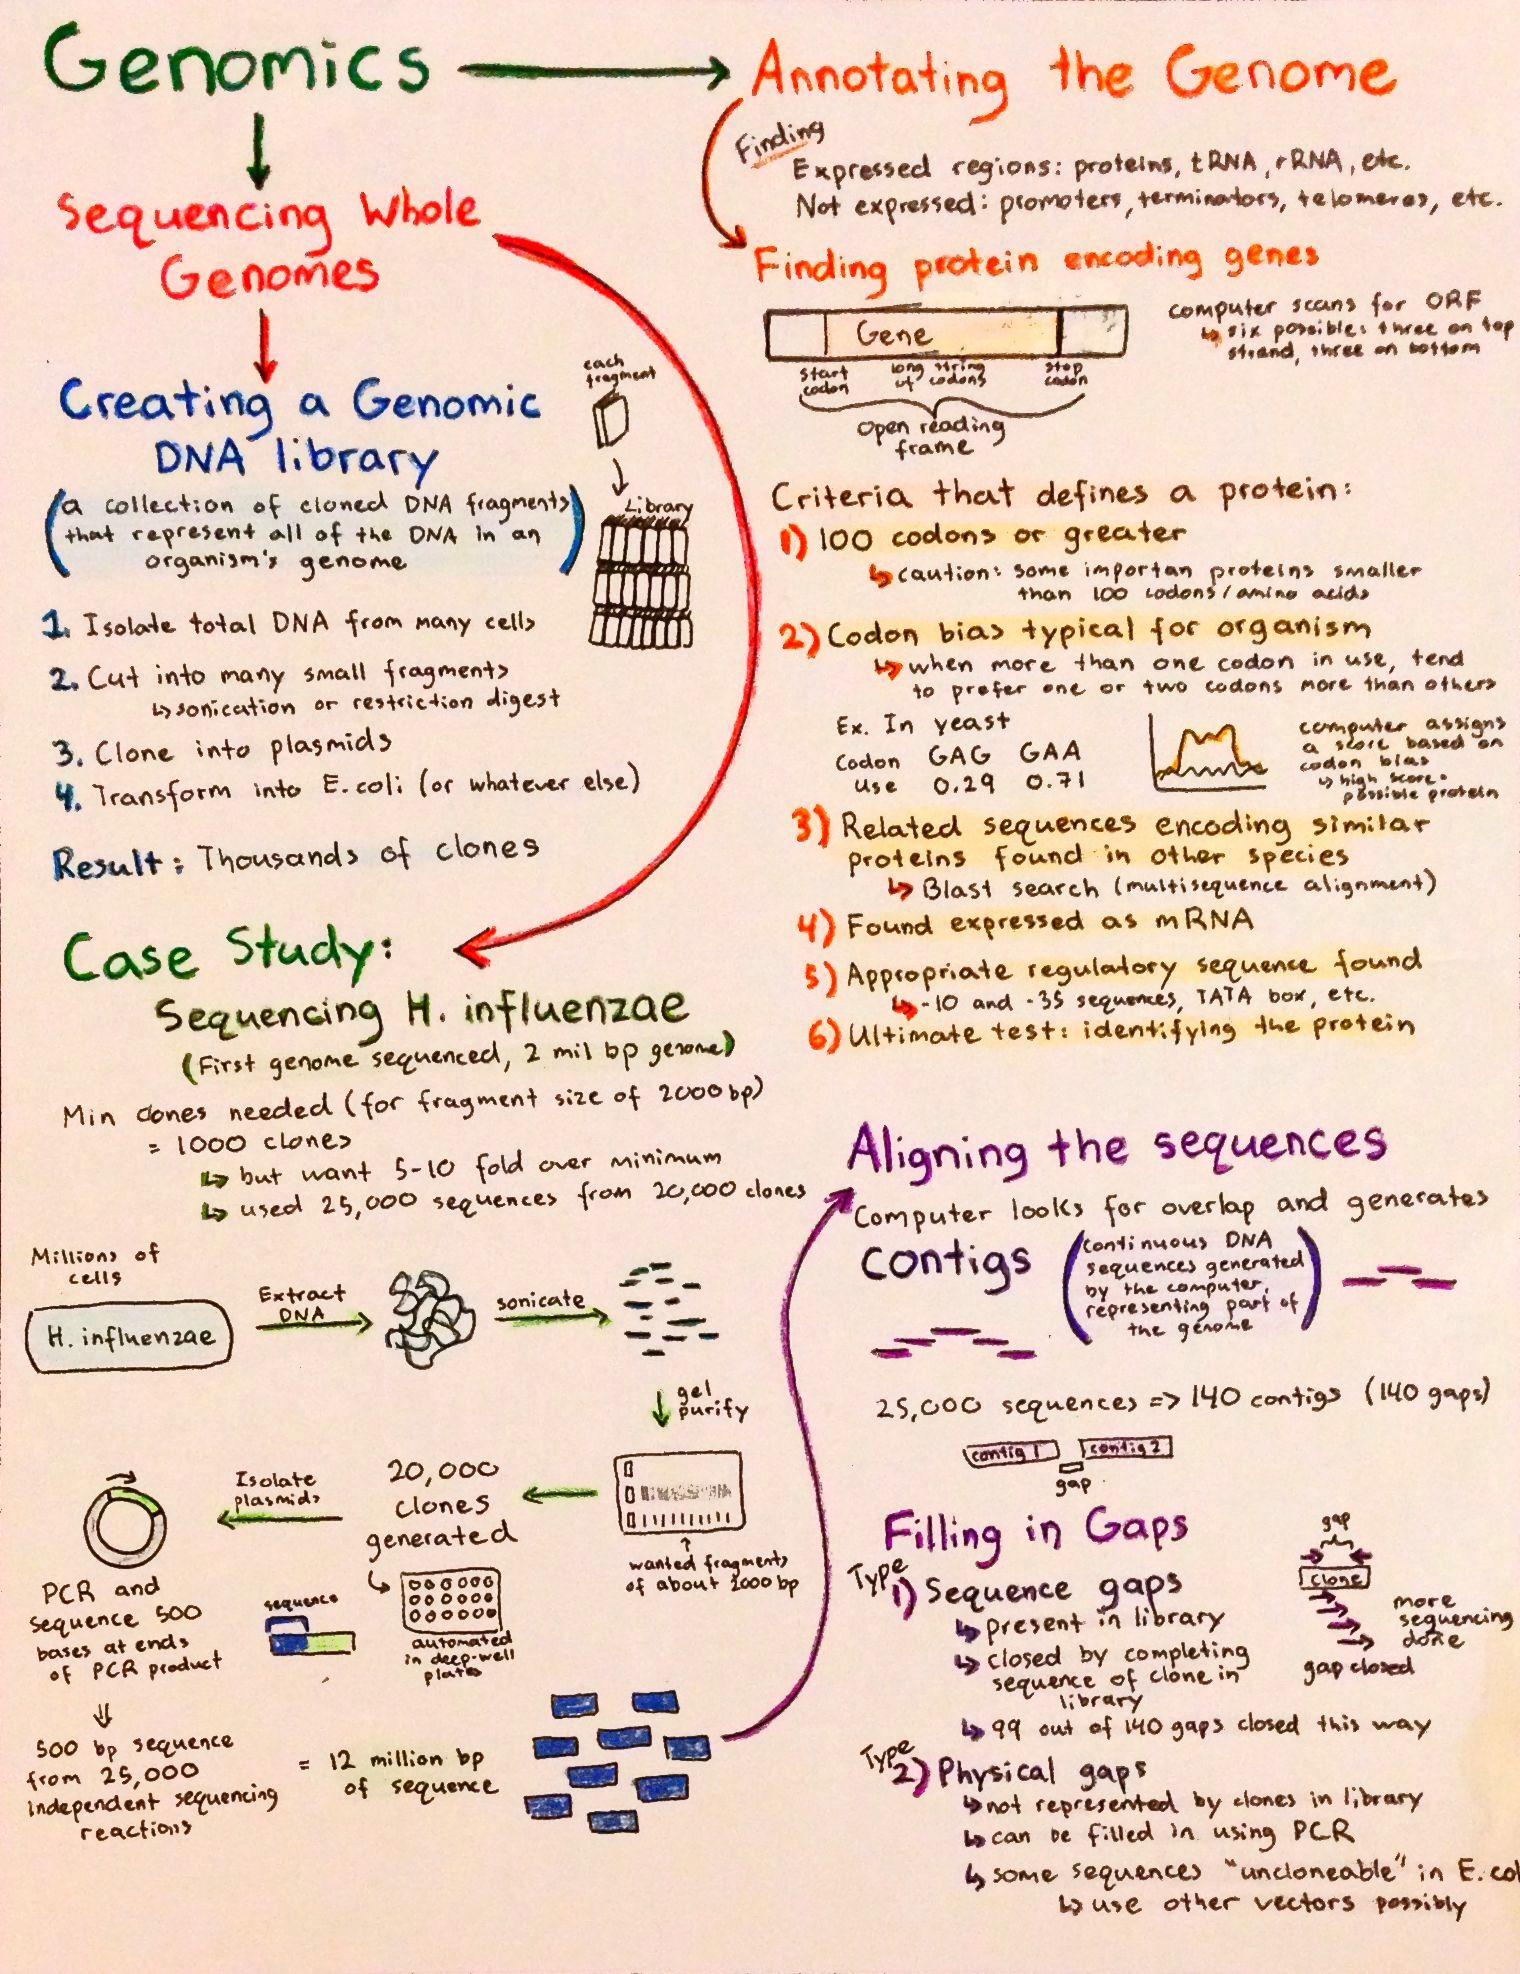 Genomics
Sequencing Whole
Genomes
Creating a Genomic
DNA library
(a collection of cloned DNA fragments
that represent all of the DNA in an
organism's genome)
each
fragment
Library
1. Isolate total DNA from many cells
2. Cut into many small fragments
↳ sonication or restriction digest
3. Clone into plasmids
4. Transform into E. coli (or whatever else)
Result: Thousands of clones
Case Study:
Sequencing H. influenzae
(First genome sequenced, 2 mil bp genome)
Min clones needed (for fragment size of 2000 bp)
= 1000 clones
↳ but want 5-10 fold over minimum
↳ used 25,000 sequences from 20,000 clones
Millions of
cells
H. influenzae
Extract
DNA
sonicate
gel
purify
wanted fragments
of about 2000 bp
20,000
clones
generated
automated
in deep-well
plates
Isolate
plasmids
PCR and
sequence 500
bases at ends
of PCR product
sequence
500 bp sequence
from 25,000
independent sequencing
reactions
= 12 million bp
of sequence
Annotating the Genome
Finding
Expressed regions: proteins, tRNA, rRNA, etc.
Not expressed: promoters, terminators, telomeres, etc.
Finding protein encoding genes
Gene
start
codon
long string
of codons
stop
codon
Open reading
frame
computer scans for ORF
↳ six possible: three on top
strand, three on bottom
Criteria that defines a protein:
1) 100 codons or greater
↳ caution: some importan proteins smaller
than 100 codons/amino acids
2) Codon bias typical for organism
↳ when more than one codon in use, tend
to prefer one or two codons more than others
Ex. In yeast
Codon GAG GAA
Use 0.29 0.71
computer assigns
a score based on
codon bias
↳ high score =
possible protein
3) Related sequences encoding similar
proteins found in other species
↳ Blast search (multisequence alignment)
4) Found expressed as mRNA
5) Appropriate regulatory sequence found
↳ -10 and -35 sequences, TATA box, etc.
6) Ultimate test: identifying the protein
Aligning the sequences
Computer looks for overlap and generates
contigs
(continuous DNA
sequences generated
by the computer,
representing part of
the genome)
25,000 sequences => 140 contigs (140 gaps)
contig 1
contig 2
gap
Filling in Gaps
Type
1) Sequence gaps
↳ present in library
↳ closed by completing
sequence of clone in
library
↳ 99 out of 140 gaps closed this way
gap
clone
more
sequencing
done
gap closed
Type
2) Physical gaps
↳ not represented by clones in library
↳ can be filled in using PCR
↳ some sequences "uncloneable" in E. col
↳ use other vectors possibly